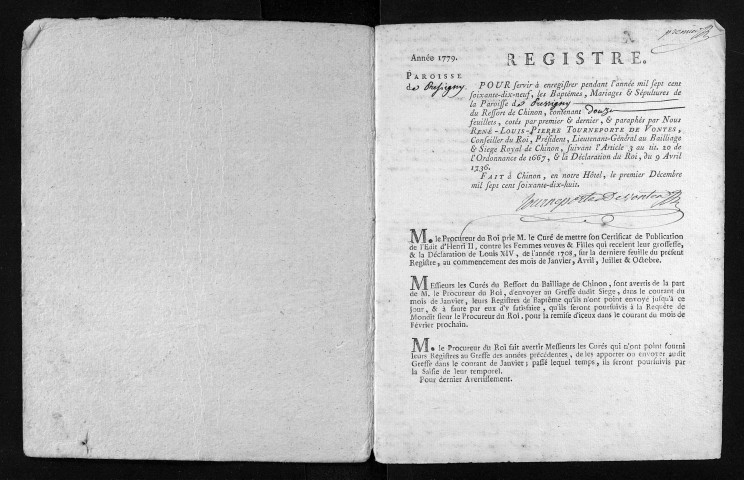 premier
Année 1779.
REGISTRE.
PAROISSE
de Pressigny
POUR servir à enregistrer pendant l'année mil sept cent
soixante-dix-neuf, les Baptêmes, Mariages & Sépultures de
la Paroisse de Pressigny
du Ressort de Chinon, contenant douze
feuillets, cotés par premier & dernier, & paraphés par Nous
RENÉ-LOUIS-PIERRE TOURNEPORTE DE VONTES,
Conseiller du Roi, Président, Lieutenant-Général au Bailliage
& Siege Royal de Chinon, suivant l'Article 3 au tit. 20 de
l'Ordonnance de 1667, & la Déclaration du Roi, du 9 Avril
1736.
FAIT à Chinon, en notre Hôtel, le premier Décembre
mil sept cent soixante-dix-huit.
Tourneporte De Vontes
M. le Procureur du Roi prie M. le Curé de mettre son Certificat de Publication
de l'Edit d'Henri II, contre les Femmes veuves & Filles qui recelent leur grossesse,
& la Déclaration de Louis XIV, de l'année 1708, sur la derniere feuille du présent
Registre, au commencement des mois de Janvier, Avril, Juillet & Octobre.
MEssieurs les Curés du Ressort du Bailliage de Chinon, sont avertis de la part
de M. le Procureur du Roi, d'envoyer au Greffe dudit Siege, dans le courant du
mois de Janvier, leurs Registres de Baptême qu'ils n'ont point envoyé jusqu'à ce
jour, & à faute par eux d'y satisfaire, qu'ils seront poursuivis à la Requête de
Mondit sieur le Procureur du Roi, pour la remise d'iceux dans le courant du mois de
Février prochain.
M. le Procureur du Roi fait avertir Messieurs les Curés qui n'ont point fourni
leurs Registres au Greffe des années précédentes, de les apporter ou envoyer audit
Greffe dans le courant de Janvier; passé lequel temps, ils seront poursuivis par
la Saisie de leur temporel.
Pour dernier Avertissement.